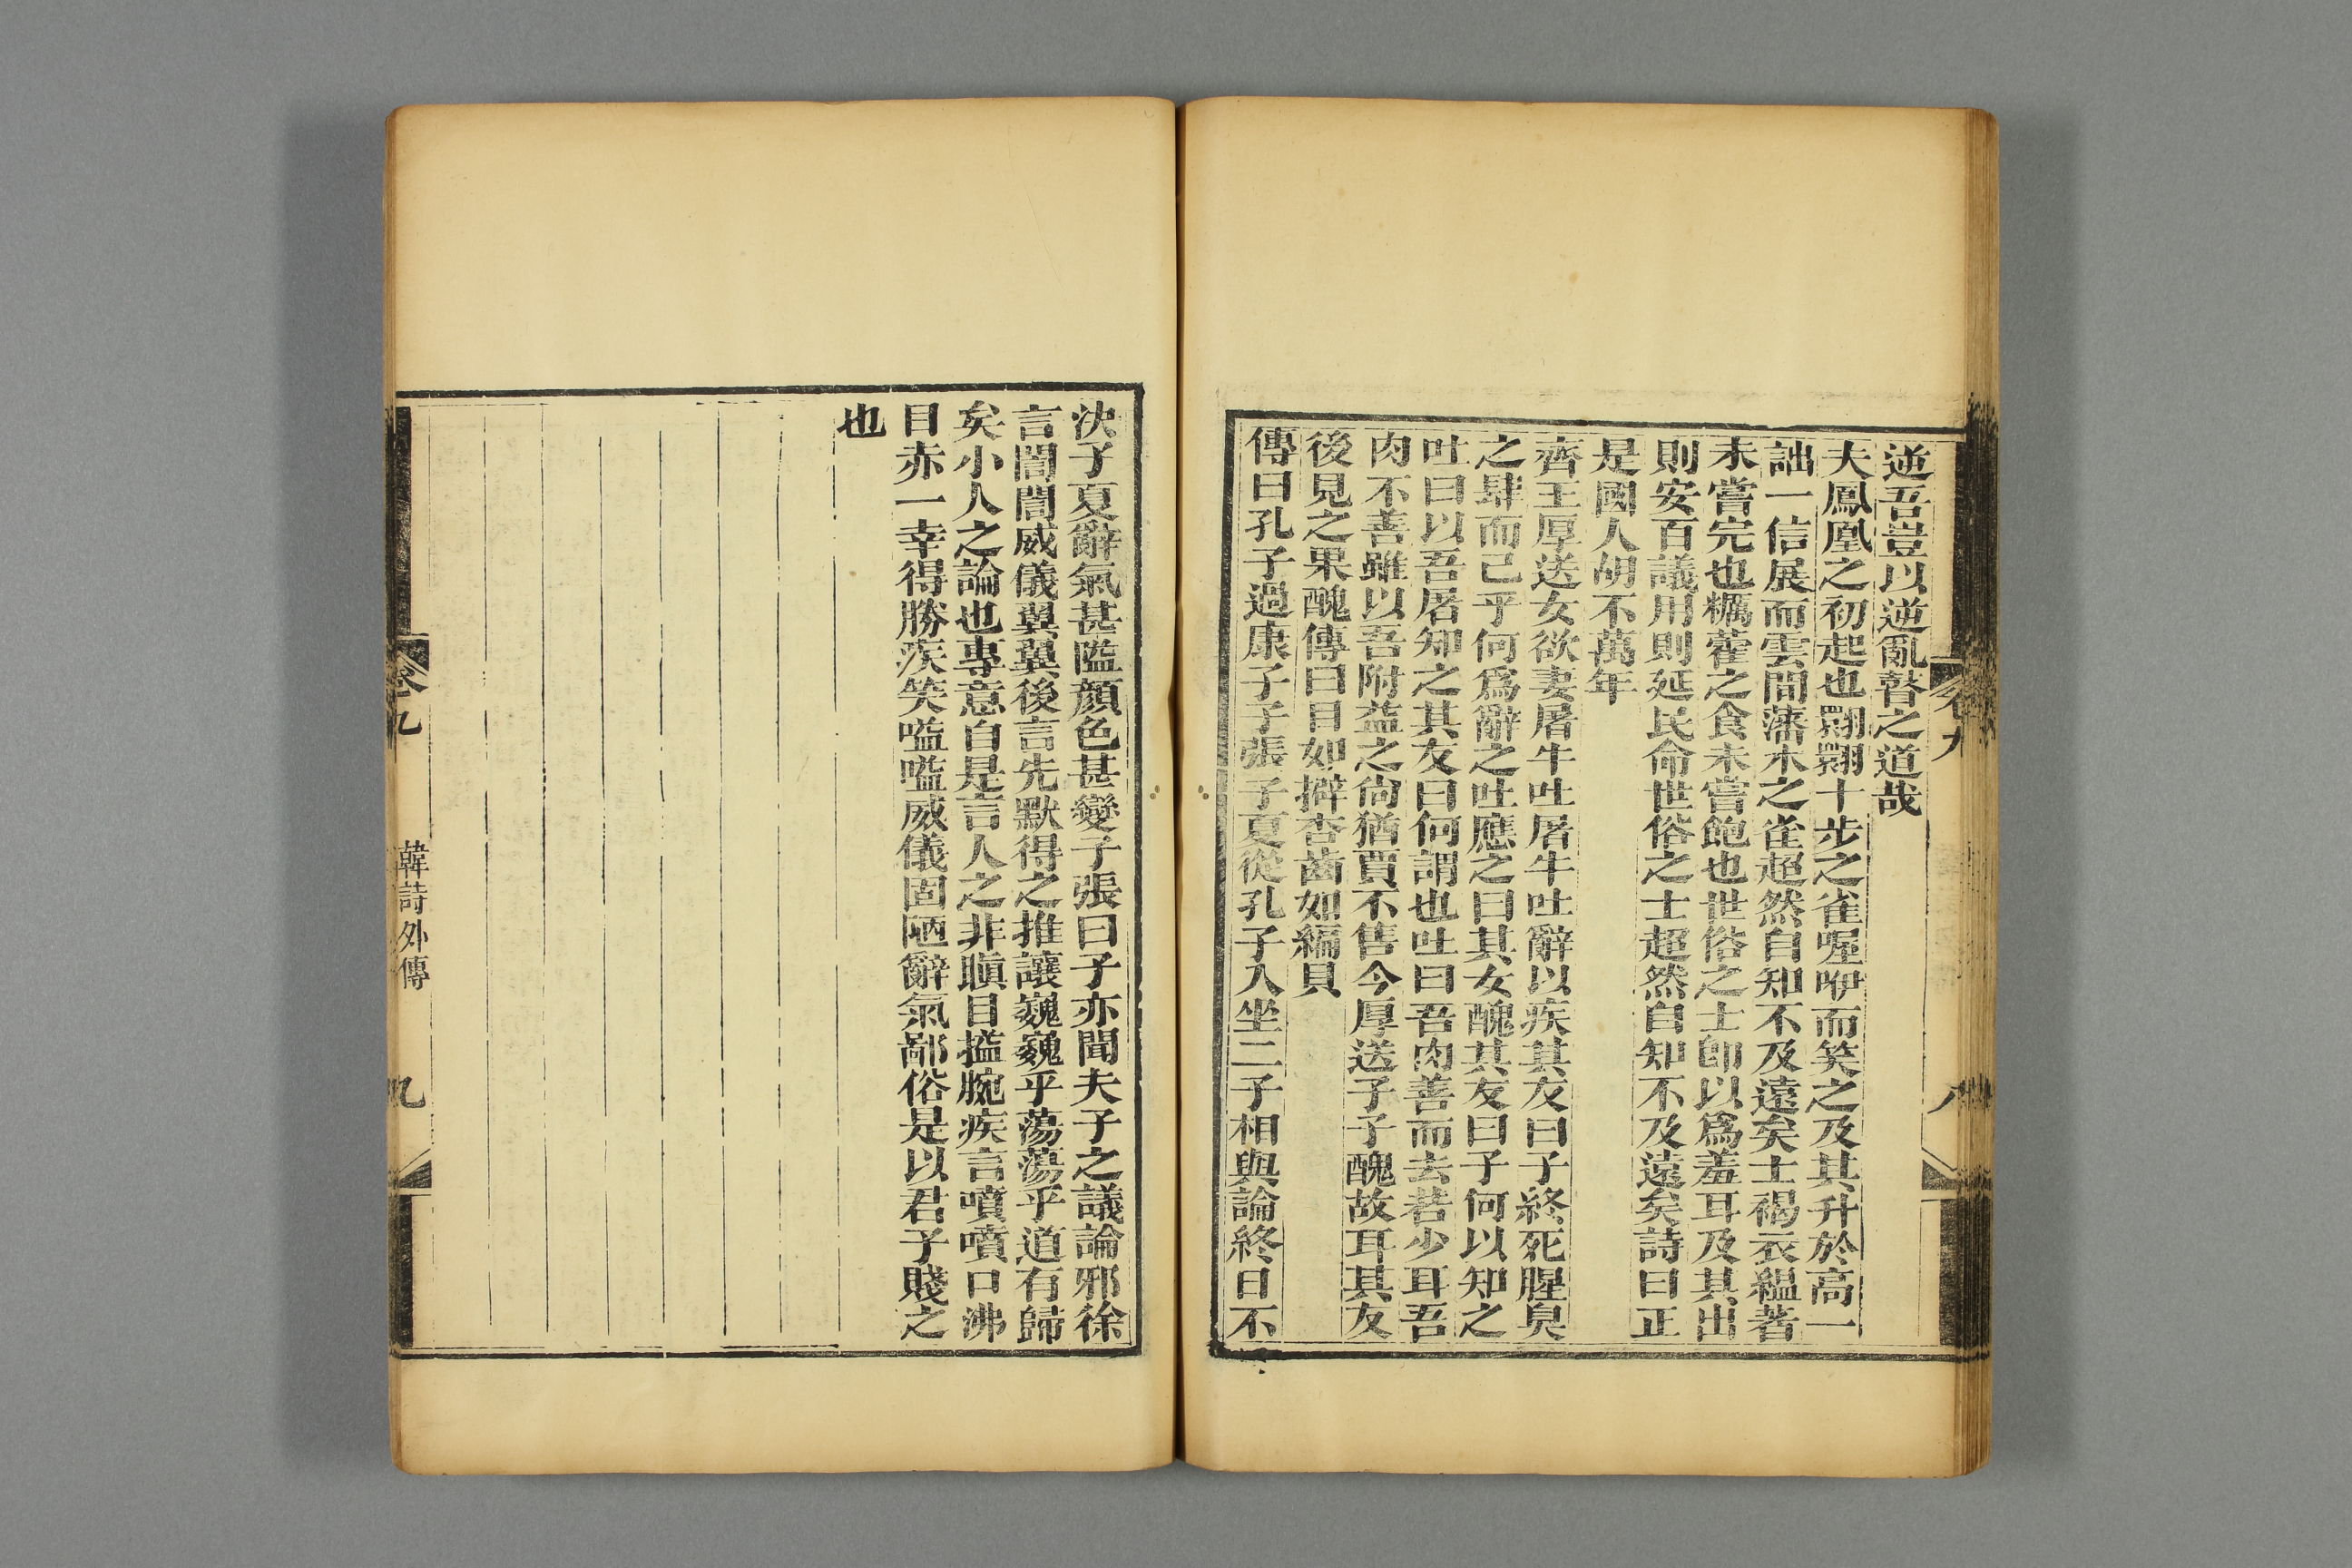 逆吾豈以逆亂朁之道哉
夫鳳凰之初起也翾翾十步之雀喔咿而笑之及其升於高一
詘一信展而雲間藩木之雀超然自知不及遠矣士褐衣緼著
未嘗完也糲藿之食未嘗飽也世俗之士卽以爲羞耳及其出
則安百議用則延民命世俗之士超然自知不及遠矣詩曰正
是國人胡不萬年
齊王厚送女欲妻屠牛吐屠牛吐辭以疾其友曰子終死腥臭
之肆而已乎何爲辭之吐應之曰其女醜其友曰子何以知之
吐曰以吾屠知之其友曰何謂也吐曰吾肉善而去若少耳吾
肉不善雖以吾附益之尙猶賈不售今厚送子子醜故耳其友
後見之果醜傳曰目如擗杏齒如編貝
傳曰孔子過康子子張子夏從孔子入坐二子相與論終日不
卷九
八
決子夏辭氣甚隘顔色甚變子張曰子亦聞夫子之議論邪徐
言誾誾威儀翼翼後言先默得之推讓巍巍乎蕩蕩乎道有歸
矣小人之論也專意自是言人之非瞋目搤腕疾言噴噴口沸
目赤一幸得勝疾笑嗌嗌威儀固陋辭氣鄙俗是以君子賤之
也
卷九
韓詩外傳
九